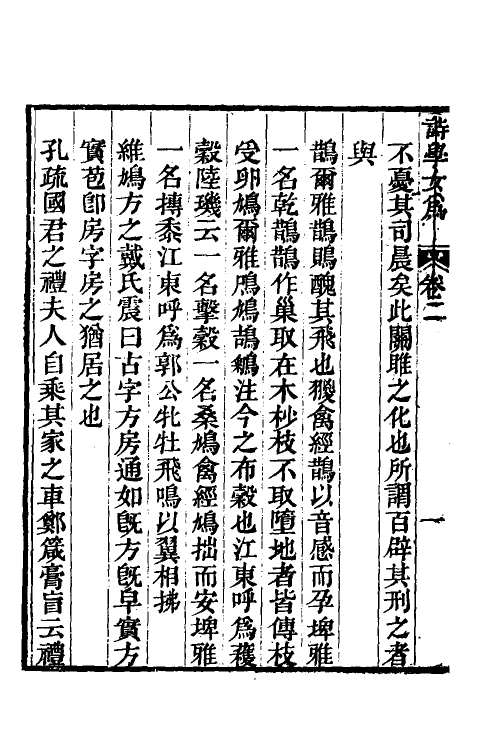 詩學女爲
卷二
一
不憂其司晨矣此關雎之化也所謂百辟其刑之者
與
鵲爾雅鵲鵙醜其飛也猣禽經鵲以音感而孕埤雅
一名乾鵲鵲作巢取在木杪枝不取墮地者皆傳枝
受卵鳲爾雅鳲鳩鴶鵴注今之布穀也江東呼爲穫
穀陸璣云一名擊穀一名桑鳩禽經鳩拙而安埤雅
一名摶黍江東呼爲郭公牝牡飛鳴以翼相拂
維鳩方之戴氏震曰古字方房通如旣方旣阜實方
實苞卽房字房之猶居之也
孔疏國君之禮夫人自乘其家之車鄭箴膏盲云禮